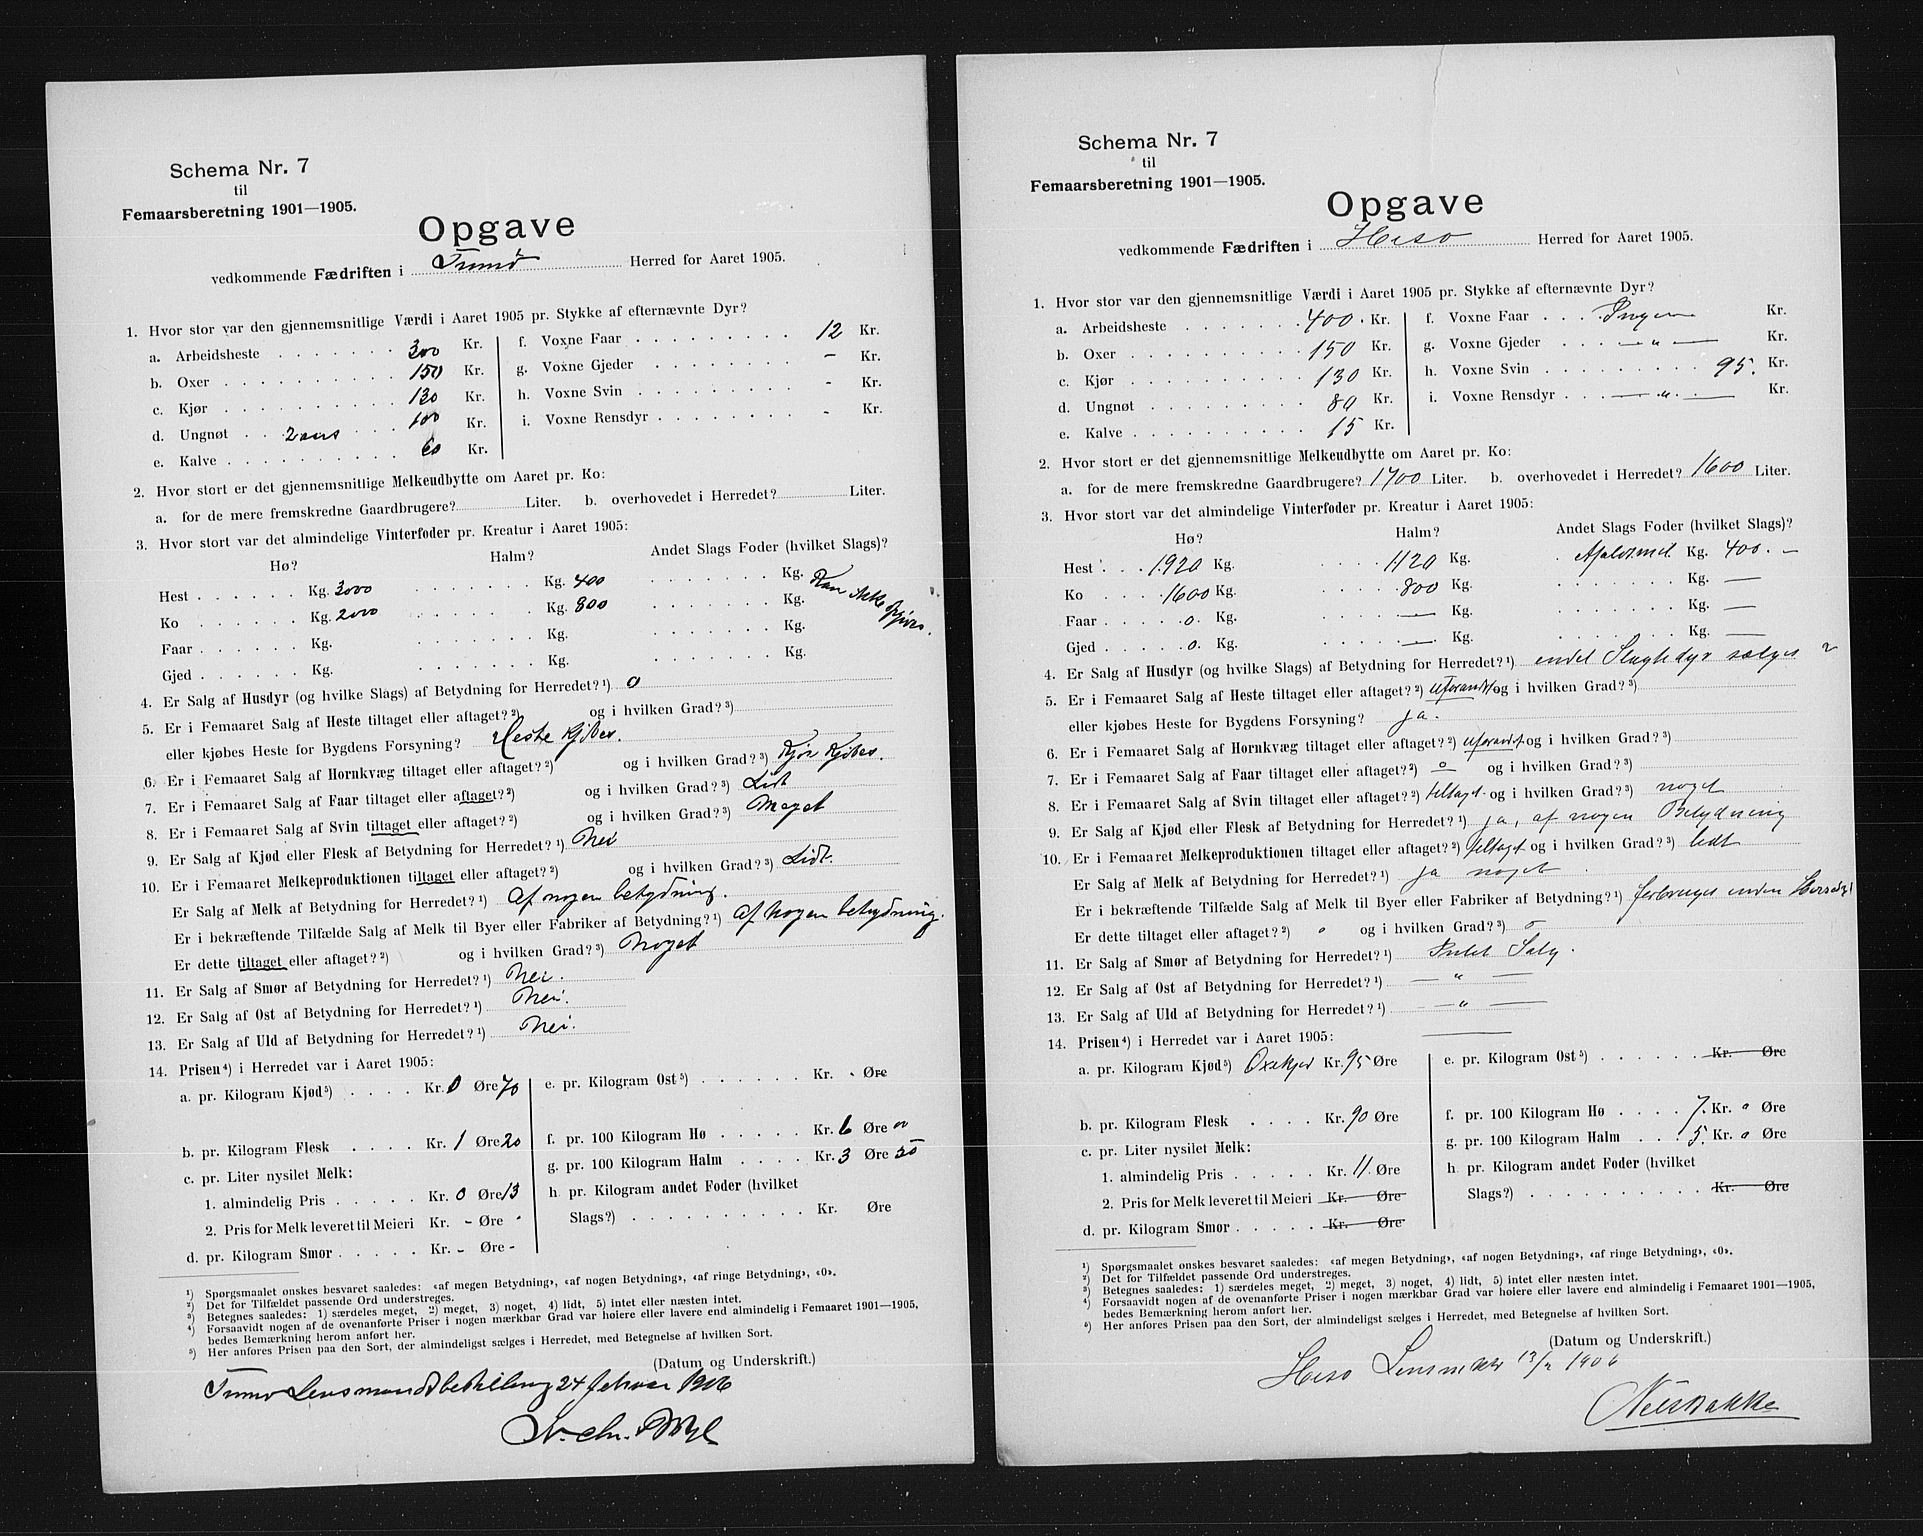 Schema Nr. 7
til
Femaarsberetning 1901—1905.
Opgave
vedkommende Fædriften i Tromø Herred for Aaret 1905.
1. Hvor stor var den gjennemsnitlige Værdi i Aaret 1905 pr. Stykke af efternævnte Dyr?
a. Arbeidsheste 300 Kr.
b. Oxer 150 Kr.
c. Kjør 130 Kr.
d. Ungnøt 2 aars 100 Kr.
e. Kalve 60 Kr.
f. Voxne Faar 12 Kr.
g. Voxne Gjeder - Kr.
h. Voxne Svin - Kr.
i. Voxne Rensdyr - Kr.
2. Hvor stort er det gjennemsnitlige Melkeudbytte om Aaret pr. Ko:
a. for de mere fremskredne Gaardbrugere? Liter. b. overhovedet i Herredet? Liter.
3. Hvor stort var det almindelige Vinterfoder pr. Kreatur i Aaret 1905:
Hø? Halm? Andet Slags Foder (hvilket Slags)?
Hest Kg. 3000 Kg. 400 Kg. Kan ikke
Ko Kg. 2000 Kg. 800 Kg. opgives.
Faar Kg. Kg. Kg.
Gjed Kg. Kg. Kg.
4. Er Salg af Husdyr (og hvilke Slags) af Betydning for Herredet? ¹) 0
5. Er i Femaaret Salg af Heste tiltaget eller aftaget? ²) og i hvilken Grad? ³)
eller kjøbes Heste for Bygdens Forsyning? Heste kjøbes.
6. Er i Femaaret Salg af Hornkvæg tiltaget eller aftaget? ²) og i hvilken Grad? ³) Kjør kjøbes.
7. Er i Femaaret Salg af Faar tiltaget eller aftaget? ²) og i hvilken Grad? ³) Lidt
8. Er i Femaaret Salg af Svin tiltaget eller aftaget? ²) og i hvilken Grad? ³) Meget
9. Er Salg af Kjød eller Flesk af Betydning for Herredet? ¹) Nei
10. Er i Femaaret Melkeproduktionen tiltaget eller aftaget? ²) og i hvilken Grad? ³) Lidt.
Er Salg af Melk af Betydning for Herredet? ¹) Af nogen betydning.
Er i bekræftende Tilfælde Salg af Melk til Byer eller Fabriker af Betydning? ¹) Af nogen betydning.
Er dette tiltaget eller aftaget? ²) og i hvilken Grad? ³) Noget
11. Er Salg af Smør af Betydning for Herredet? ¹) Nei.
12. Er Salg af Ost af Betydning for Herredet? ¹) Nei.
13. Er Salg af Uld af Betydning for Herredet? ¹) Nei.
14. Prisen ⁴) i Herredet var i Aaret 1905:
a. pr. Kilogram Kjød ⁵) Kr. 0 Øre 70
b. pr. Kilogram Flesk Kr. 1 Øre 20
c. pr. Liter nysilet Melk:
1. almindelig Pris Kr. 0 Øre 13
2. Pris for Melk leveret til Meieri Kr. - Øre -
d. pr. Kilogram Smør Kr. - Øre -
e. pr. Kilogram Ost ⁵) Kr. - Øre
f. pr. 100 Kilogram Hø Kr. 6 Øre 00
g. pr. 100 Kilogram Halm Kr. 3 Øre 50
h. pr. Kilogram andet Foder (hvilket
Slags?) Kr. Øre
¹) Spørgsmaalet ønskes besvaret saaledes: «af megen Betydning», «af nogen Betydning», «af ringe Betydning», «0».
²) Det for Tilfældet passende Ord understreges.
³) Betegnes saaledes: 1) særdeles meget, 2) meget, 3) noget, 4) lidt, 5) intet eller næsten intet.
⁴) Forsaavidt nogen af de ovenanførte Priser i nogen mærkbar Grad var høiere eller lavere end almindelig i Femaaret 1901—1905,
bedes Bemærkning herom anført her.
⁵) Her anføres Prisen paa den Sort, der almindeligst sælges i Herredet, med Betegnelse af hvilken Sort.
(Datum og Underskrift.)
Tromø Lensmandsbestilling 24 februar 1906
Schema Nr. 7
til
Femaarsberetning 1901—1905.
Opgave
vedkommende Fædriften i Hisø Herred for Aaret 1905.
1. Hvor stor var den gjennemsnitlige Værdi i Aaret 1905 pr. Stykke af efternævnte Dyr?
a. Arbeidsheste 400 . Kr.
b. Oxer 150 Kr.
c. Kjør 130 Kr.
d. Ungnøt 80 Kr.
e. Kalve 15 Kr.
f. Voxne Faar Ingen Kr.
g. Voxne Gjeder — " — Kr.
h. Voxne Svin 95. Kr.
i. Voxne Rensdyr — " — Kr.
2. Hvor stort er det gjennemsnitlige Melkeudbytte om Aaret pr. Ko:
a. for de mere fremskredne Gaardbrugere? 1700 Liter. b. overhovedet i Herredet? 1600 Liter.
3. Hvor stort var det almindelige Vinterfoder pr. Kreatur i Aaret 1905:
Hø? Halm? Andet Slags Foder (hvilket Slags)?
Hest 1920 Kg. 1120 Kg. Kg. 400. —
Ko 1600 Kg. 800 Kg. Kg. —
Faar 0. Kg. — Kg. Kg. —
Gjed 0. Kg. — Kg. Kg. —
4. Er Salg af Husdyr (og hvilke Slags) af Betydning for Herredet? ¹) endel Slagtedyr sælges
5. Er i Femaaret Salg af Heste tiltaget eller aftaget? ²) uforandr. og i hvilken Grad? ³)
eller kjøbes Heste for Bygdens Forsyning? ja.
6. Er i Femaaret Salg af Hornkvæg tiltaget eller aftaget? ²) uforandr. og i hvilken Grad? ³)
7. Er i Femaaret Salg af Faar tiltaget eller aftaget? ²) 0 og i hvilken Grad? ³)
8. Er i Femaaret Salg af Svin tiltaget eller aftaget? ²) tiltaget og i hvilken Grad? ³) noget
9. Er Salg af Kjød eller Flesk af Betydning for Herredet? ¹) ja, af nogen Betydning
10. Er i Femaaret Melkeproduktionen tiltaget eller aftaget? ²) tiltaget og i hvilken Grad? ³) lidt
Er Salg af Melk af Betydning for Herredet? ¹) ja noget
Er i bekræftende Tilfælde Salg af Melk til Byer eller Fabriker af Betydning? ¹) forbruges inden Herredet
Er dette tiltaget eller aftaget? ²) " og i hvilken Grad? ³) 0
11. Er Salg af Smør af Betydning for Herredet? ¹) Intet Salg.
12. Er Salg af Ost af Betydning for Herredet? ¹) — " —
13. Er Salg af Uld af Betydning for Herredet? ¹) — " —
14. Prisen ⁴) i Herredet var i Aaret 1905:
a. pr. Kilogram Kjød ⁵) Oxekjød Kr. 95 Øre
b. pr. Kilogram Flesk Kr. 90 Øre
c. pr. Liter nysilet Melk:
1. almindelig Pris Kr. 11. Øre
2. Pris for Melk leveret til Meieri Kr. Øre
d. pr. Kilogram Smør Kr. Øre
e. pr. Kilogram Ost ⁵) Kr. Øre
f. pr. 100 Kilogram Hø 7. Kr. " Øre
g. pr. 100 Kilogram Halm 5. Kr. " Øre
h. pr. Kilogram andet Foder (hvilket
Slags?) Kr. Øre
¹) Spørgsmaalet ønskes besvaret saaledes: «af megen Betydning», «af nogen Betydning», «af ringe Betydning», «0».
²) Det for Tilfældet passende Ord understreges.
³) Betegnes saaledes: 1) særdeles meget, 2) meget, 3) noget, 4) lidt, 5) intet eller næsten intet.
⁴) Forsaavidt nogen af de ovenanførte Priser i nogen mærkbar Grad var høiere eller lavere end almindelig i Femaaret 1901—1905,
bedes Bemærkning herom anført her.
⁵) Her anføres Prisen paa den Sort, der almindeligst sælges i Herredet, med Betegnelse af hvilken Sort.
(Datum og Underskrift.)
Hisø 13/2 1906